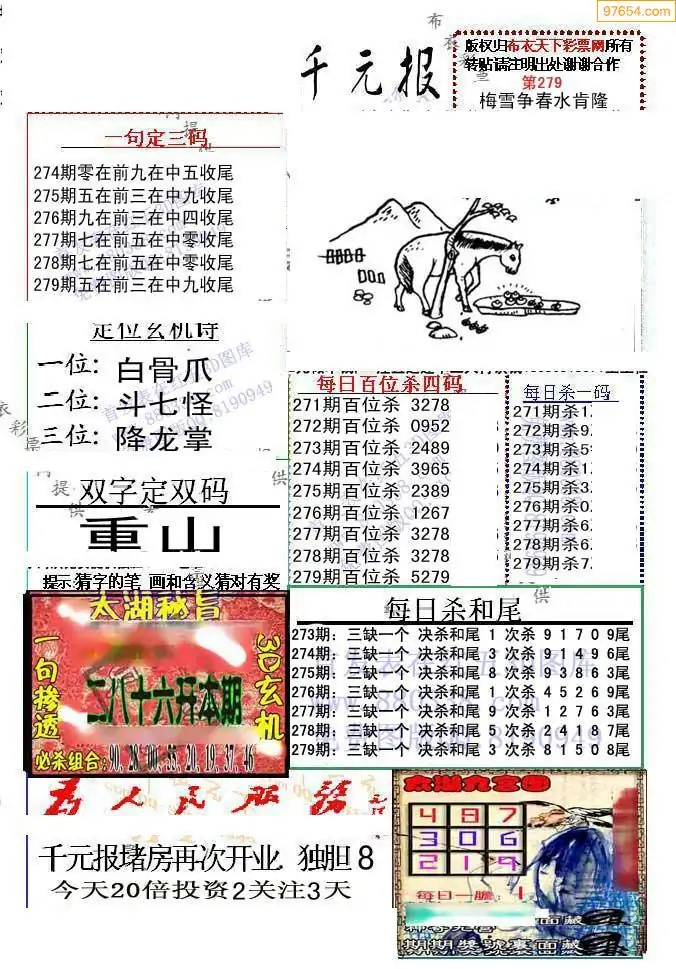 97654.com
千元报
版权归布衣天下彩票网所有
转贴请注明出处谢谢合作
第279
梅雪争春水肯隆
一句定三码
274期零在前九在中五收尾
275期五在前三在中九收尾
276期九在前三在中四收尾
277期七在前五在中零收尾
278期七在前五在中零收尾
279期五在前三在中九收尾
定位玄机诗
一位: 白骨爪
二位: 斗七怪
三位: 降龙掌
双字定双码
重山
提示:猜字的笔 画和含义猜对有奖
每日百位杀四码
271期百位杀 3278
272期百位杀 0952
273期百位杀 2489
274期百位杀 3965
275期百位杀 2389
276期百位杀 1267
277期百位杀 3278
278期百位杀 3278
279期百位杀 5279
每日杀一码
271期杀1
272期杀9
273期杀5
274期杀1
275期杀3
276期杀0
277期杀6
278期杀6
279期杀7
太湖秘旨
一句掺透
3D玄机
二八十六开本期
必杀组合: 90, 28, 00, 55, 20, 19, 37, 46
每日杀和尾
273期: 三缺一个 决杀和尾 1 次杀 9 1 7 0 9尾
274期: 三缺一个 决杀和尾 3 次杀 9 1 4 9 6尾
275期: 三缺一个 决杀和尾 8 次杀 0 3 8 6 3尾
276期: 三缺一个 决杀和尾 1 次杀 4 5 2 6 9尾
277期: 三缺一个 决杀和尾 9 次杀 1 2 7 6 3尾
278期: 三缺一个 决杀和尾 5 次杀 2 4 1 8 7尾
279期: 三缺一个 决杀和尾 3 次杀 6 1 5 0 8尾
为人民服务
千元报堵房再次开业 独胆 8
今天20倍投资2关注3天
太湖九宫图
4 8 7
3 0 6
2 1 9
每日一胆: 1
期期奖號裏面藏